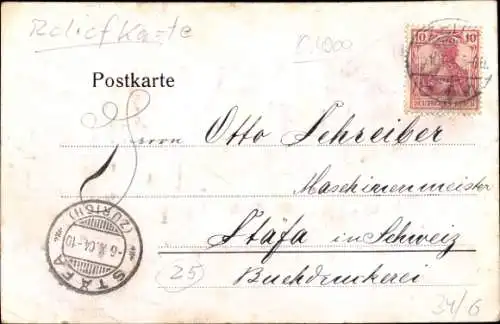 Reliefkarte
C. 1900
10 10
DEUTSCHES REICH
Postkarte
Herrn Otto Schreiber
Maschinenmeister
Stäfa in Schweiz
Buchdruckerei
STÄFA
(ZÜRICH)
25)
34/6